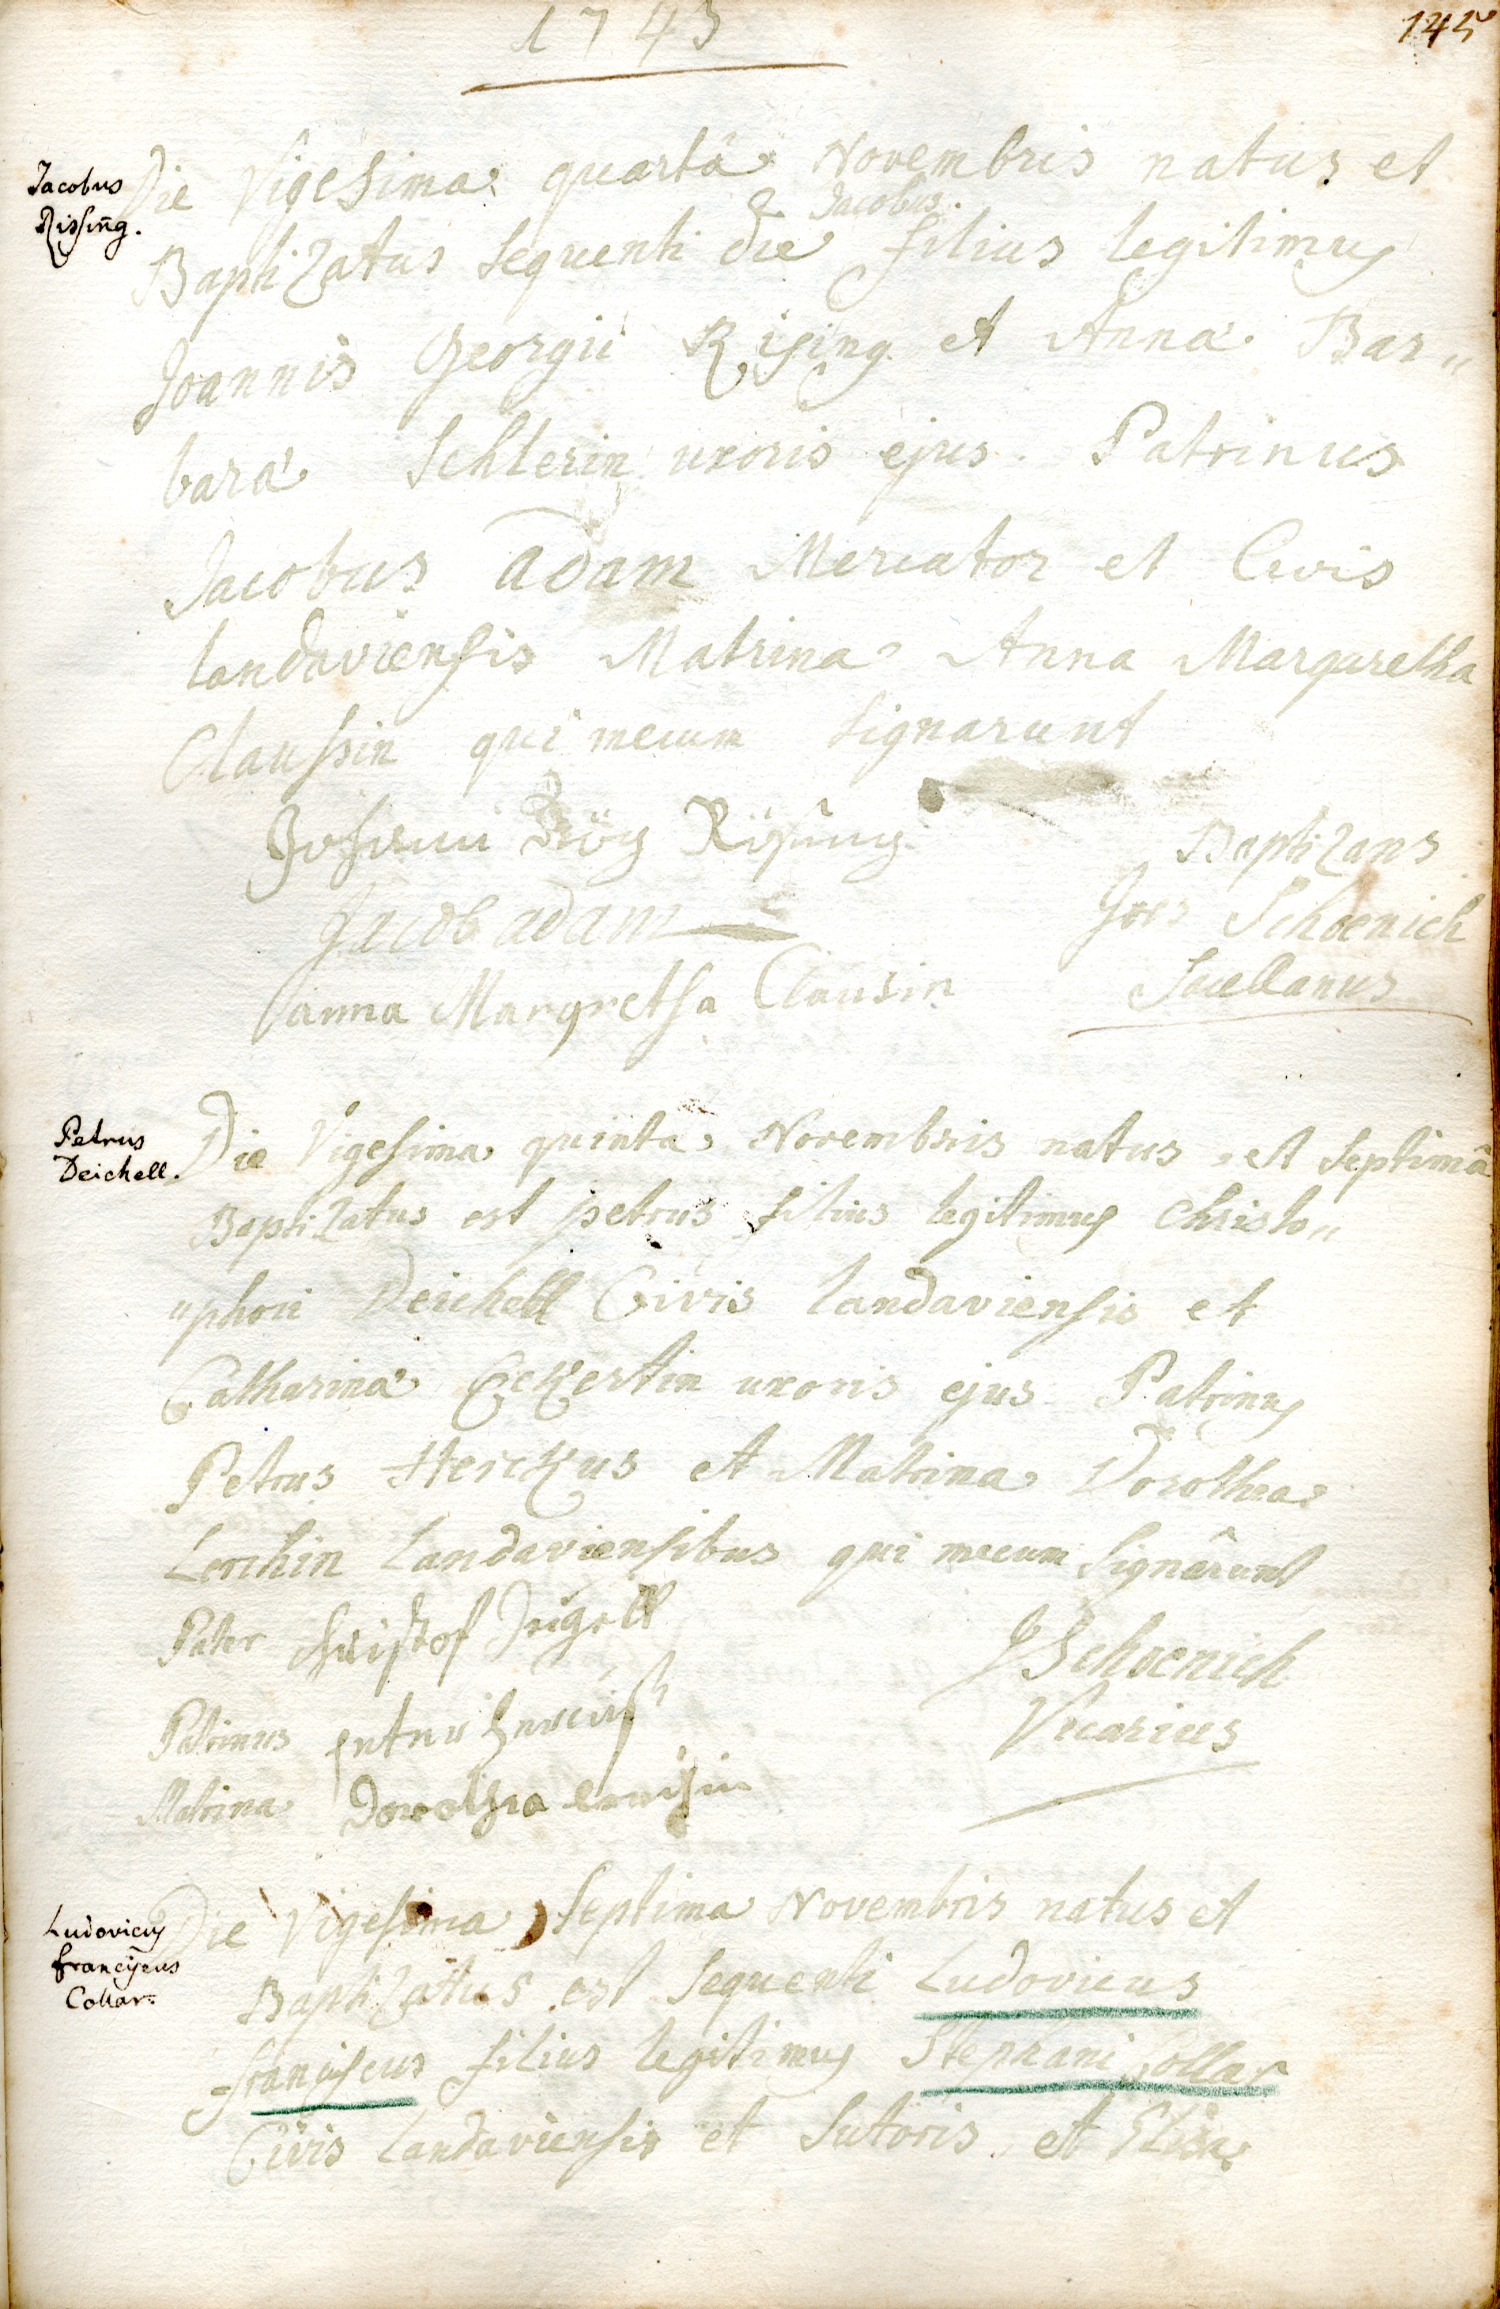 1743
145
Jacobus
Rissing.
Die Vigesima quartâ Novembris natus et
Jacobus.
Baptizatus sequenti die filius legitimus
Joannis Georgii Rising et Anna Bar„
bara Schlerin uxoris ejus. Patrinus
Jacobus Adam Mercator et Civis
landaviensis Matrina Anna Margaretha
Claussin qui mecum signarunt
Johann Rising
Baptizans
Jacob adam
Joes Schoenich
anna Margretha Clausin
Sacellanus
Petrus
Deichell.
Die Vigesima quinta Novembris natus et septimâ
Baptizatus est petrus filius legitimus Christo„
„phori Deichell Civis landaviensis et
Catharina Eckertin uxoris ejus Patrinus
Petrus Herckus et Matrina Dorothea
Lerchin Landaviensibus qui mecum signârunt
Pater Christof
JSchoenich
Patrinus
Vicarius
Matrina Dorothea
Ludovicus
franciscus
Collar:
Die Vigesima Septima Novembris natus et
Baptizatus est sequenti Ludovicus
franciscus filius legitimus Stephani Collar
Civis landaviensis et Sutoris et Elisa